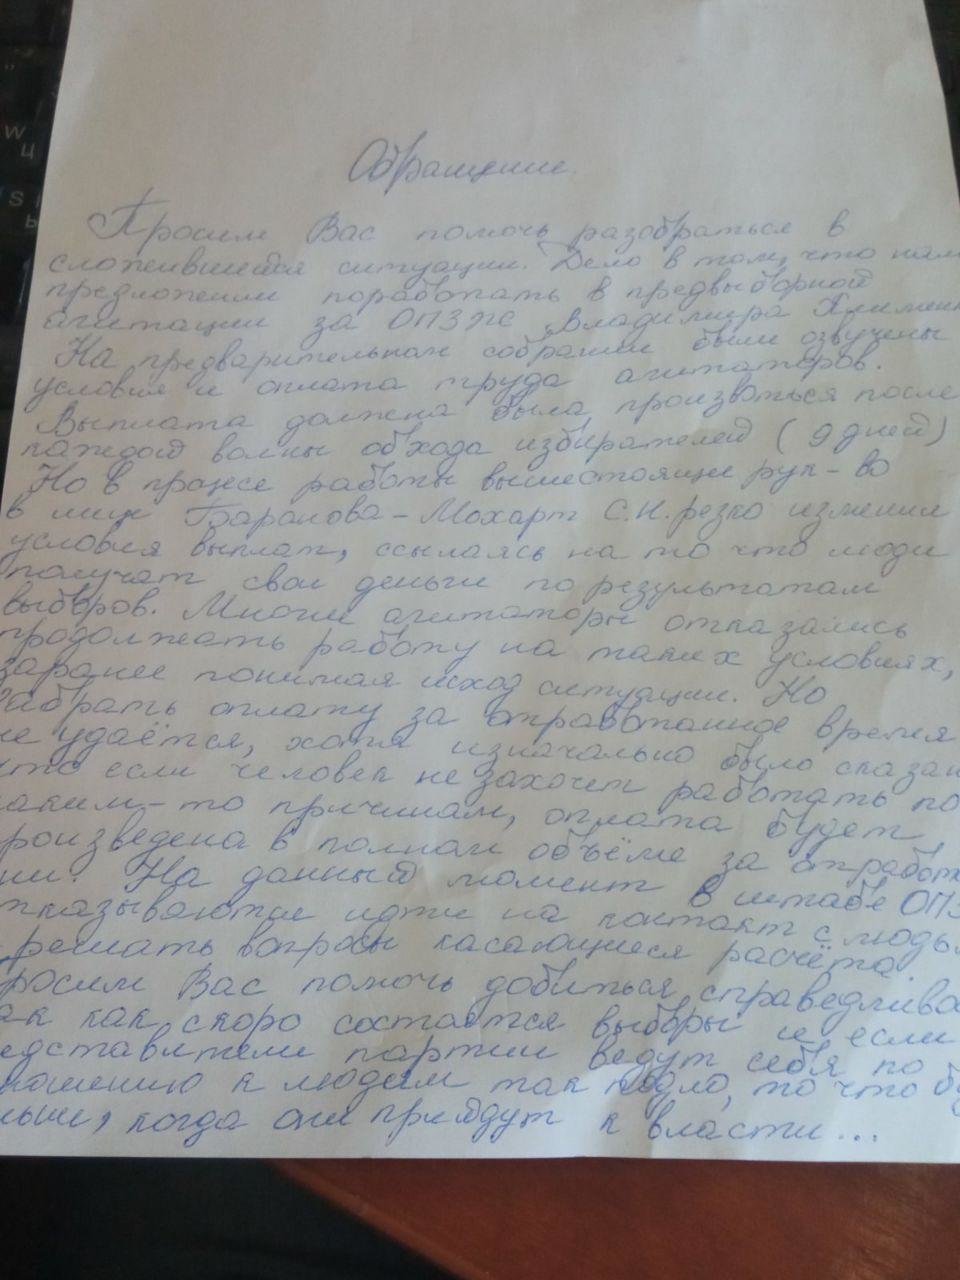 Обращение.
Просим Вас помочь разобраться в
сложившейся ситуации. Дело в том, что нам
предложили поработать в предвыборной
агитации за ОПЗЖ Владимира
На предварительном собрании были озвучены
условия и оплата труда агитаторов.
Выплата должна была произвоться после
каждой волны обхода избирателей (9 дней)
Но в процесе работы вышестоящие рук-во
в лице Баранова-Мохарт С.Н. резко изменил
условия выплат, ссылаясь на то что люди
получат свои деньги по результатам
выборов. Многие агитаторы отказались
продолжать работу на таких условиях,
заранее понимая исход ситуации. Но
забрать оплату за отработанное время
не удаётся, хотя изначально было сказан
что если человек не захочет работать по
аким-то причинам, оплата будет
роизведена в полном объёме за отработ
ни. На данный момент в штабе ОПЗ
тказываются идти на контакт с людь
решать вопросы касающиеся расчёта.
росим Вас помочь добиться справедлива
ак как скоро состоятся выборы и если
едставители партии ведут себя по
ношению к людям так подло, то что бу
ньше, когда они прийдут к власти...
W
Ц
S
Ы